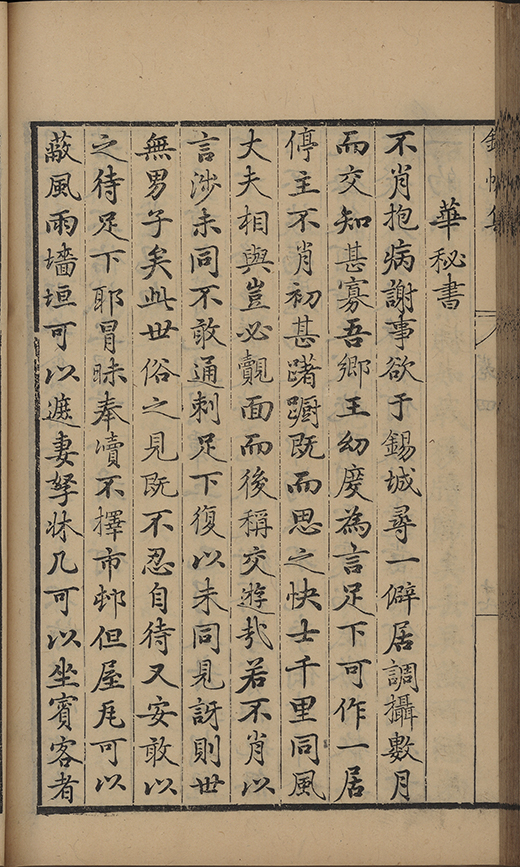 錦帆集
華秘書
不肖抱病謝事欲于錫城尋一僻居調攝數月
而交知甚寡吾鄉王幼度為言足下可作一居
停主不肖初甚躇躕既而思之快士千里同風
大夫相與豈必覿面而後稱交遊哉若不肖以
言涉未同不敢通刺足下復以未同見訝則世
無男子矣此世俗之見既不忍自待又安敢以
之待足下耶冐昧奉凟不擇市邨但屋瓦可以
蔽風雨墻垣可以遮妻孥牀几可以坐賓客者